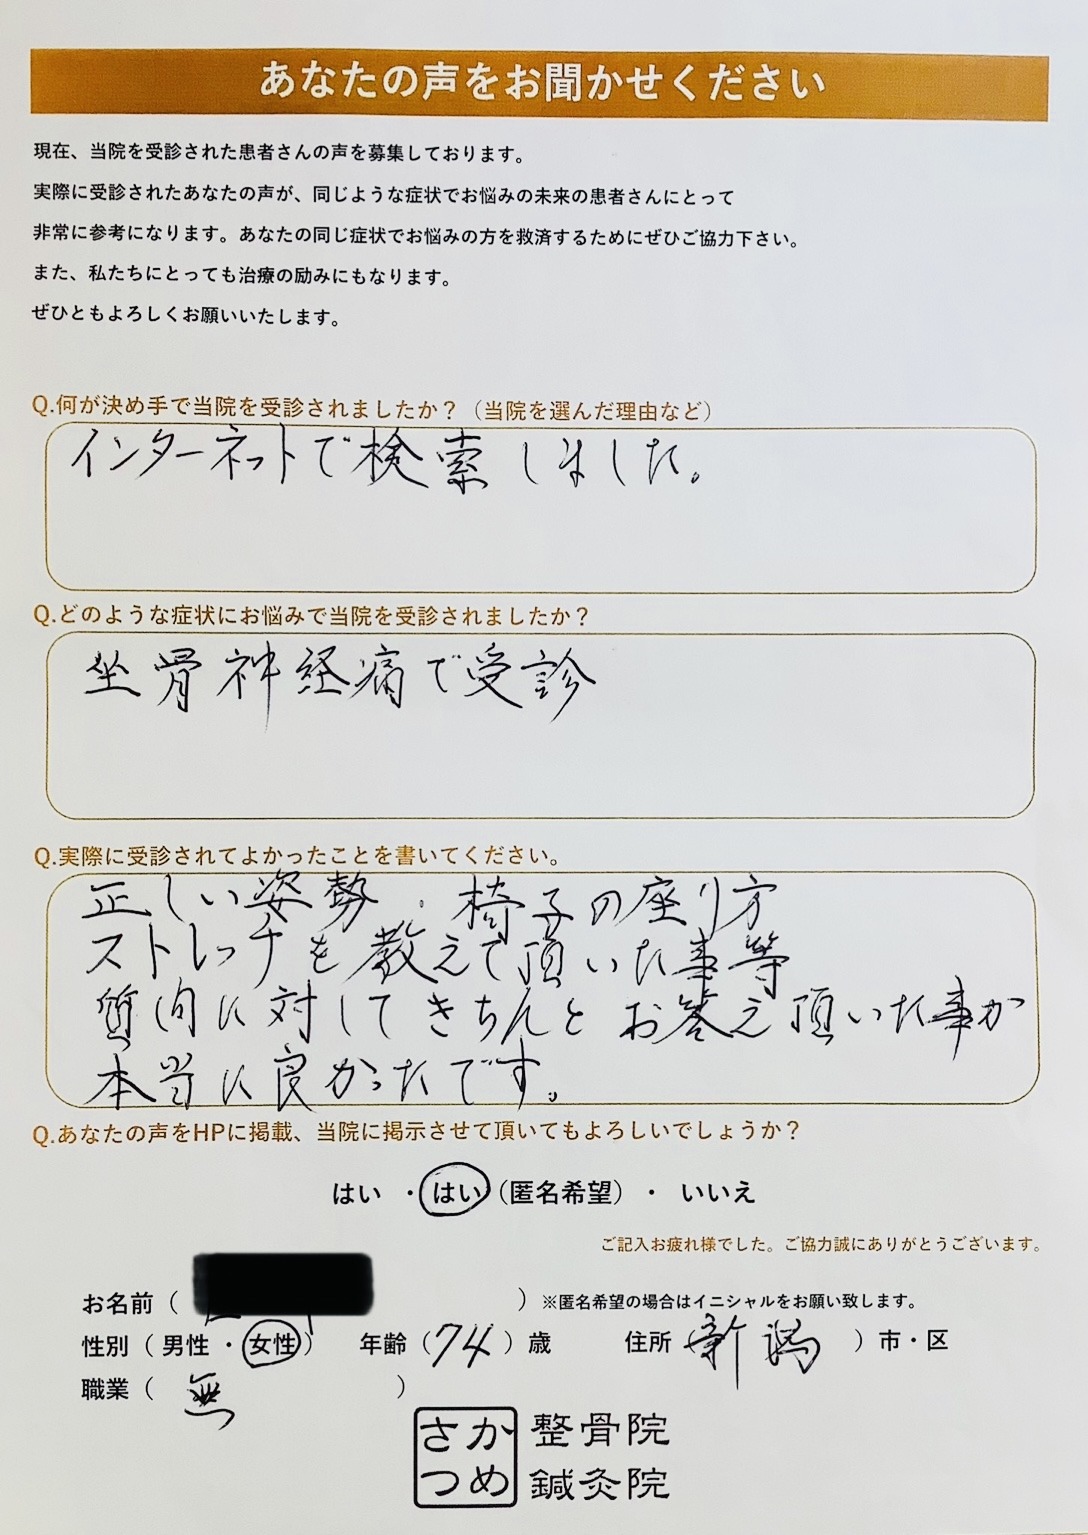 あなたの声をお聞かせください
現在、当院を受診された患者さんの声を募集しております。
実際に受診されたあなたの声が、同じような症状でお悩みの未来の患者さんにとって
非常に参考になります。あなたの同じ症状でお悩みの方を救済するためにぜひご協力下さい。
また、私たちにとっても治療の励みにもなります。
ぜひともよろしくお願いいたします。
Q.何が決め手で当院を受診されましたか？（当院を選んだ理由など）
インターネットで検索しました。
Q.どのような症状にお悩みで当院を受診されましたか？
坐骨神経痛で受診
Q.実際に受診されてよかったことを書いてください。
正しい姿勢、椅子の座り方
ストレッチを教えて頂いた事等
質問に対してきちんとお答え頂いた事が
本当に良かったです。
Q.あなたの声をHPに掲載、当院に掲示させて頂いてもよろしいでしょうか？
はい ・ はい（匿名希望） ・ いいえ
ご記入お疲れ様でした。ご協力誠にありがとうございます。
お名前（ ）※匿名希望の場合はイニシャルをお願い致します。
性別（男性・女性） 年齢（74）歳 住所 新潟 ）市・区
職業（ 無 ）
さかつめ 整骨院
鍼灸院